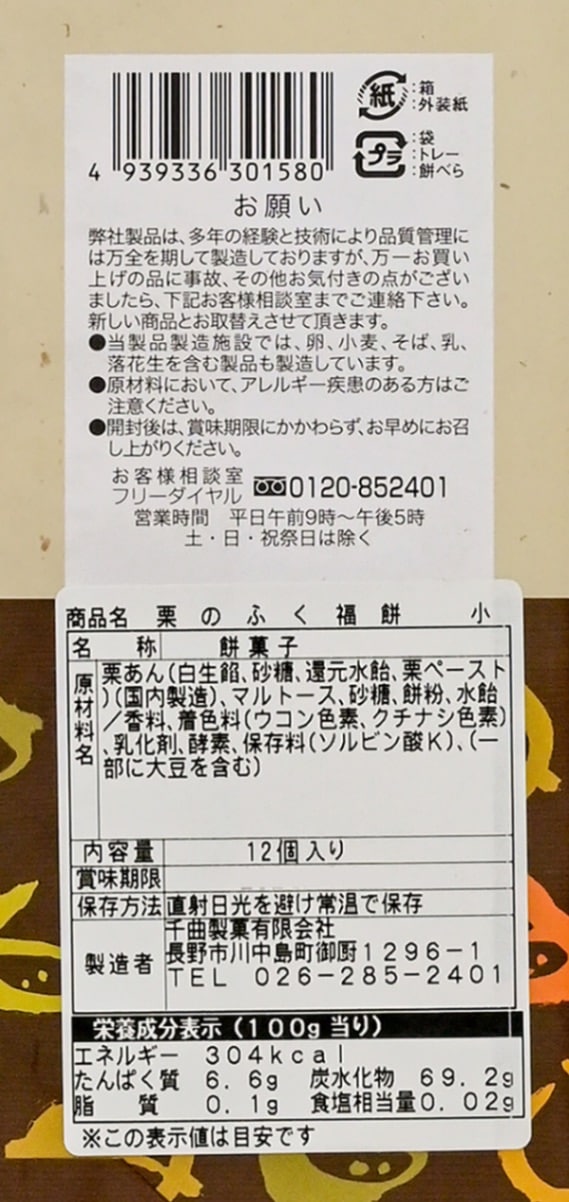 紙 : 箱
: 外装紙
プラ : 袋
: トレー
: 餅べら
4 939336 301580
お願い
弊社製品は、多年の経験と技術により品質管理に
は万全を期して製造しておりますが、万一お買い
上げの品に事故、その他お気付きの点がござい
ましたら、下記お客様相談室までご連絡下さい。
新しい商品とお取替えさせて頂きます。
●当製品製造施設では、卵、小麦、そば、乳、
落花生を含む製品も製造しています。
●原材料において、アレルギー疾患のある方はご
注意ください。
●開封後は、賞味期限にかかわらず、お早めにお召
し上がりください。
お客様相談室
フリーダイヤル 0120-852401
営業時間 平日午前9時〜午後5時
土・日・祝祭日は除く
商品名 栗のふく福餅 小
名称 餅菓子
原材料名 栗あん(白生餡、砂糖、還元水飴、栗ペースト
)(国内製造)、マルトース、砂糖、餅粉、水飴
/香料、着色料(ウコン色素、クチナシ色素)
、乳化剤、酵素、保存料(ソルビン酸K)、(一
部に大豆を含む)
内容量 12個入り
賞味期限
保存方法 直射日光を避け常温で保存
製造者 千曲製菓有限会社
長野市川中島町御厨1296-1
TEL 026-285-2401
栄養成分表示(100g当り)
エネルギー 304kcal
たんぱく質 6.6g 炭水化物 69.2g
脂質 0.1g 食塩相当量0.02g
※この表示値は目安です